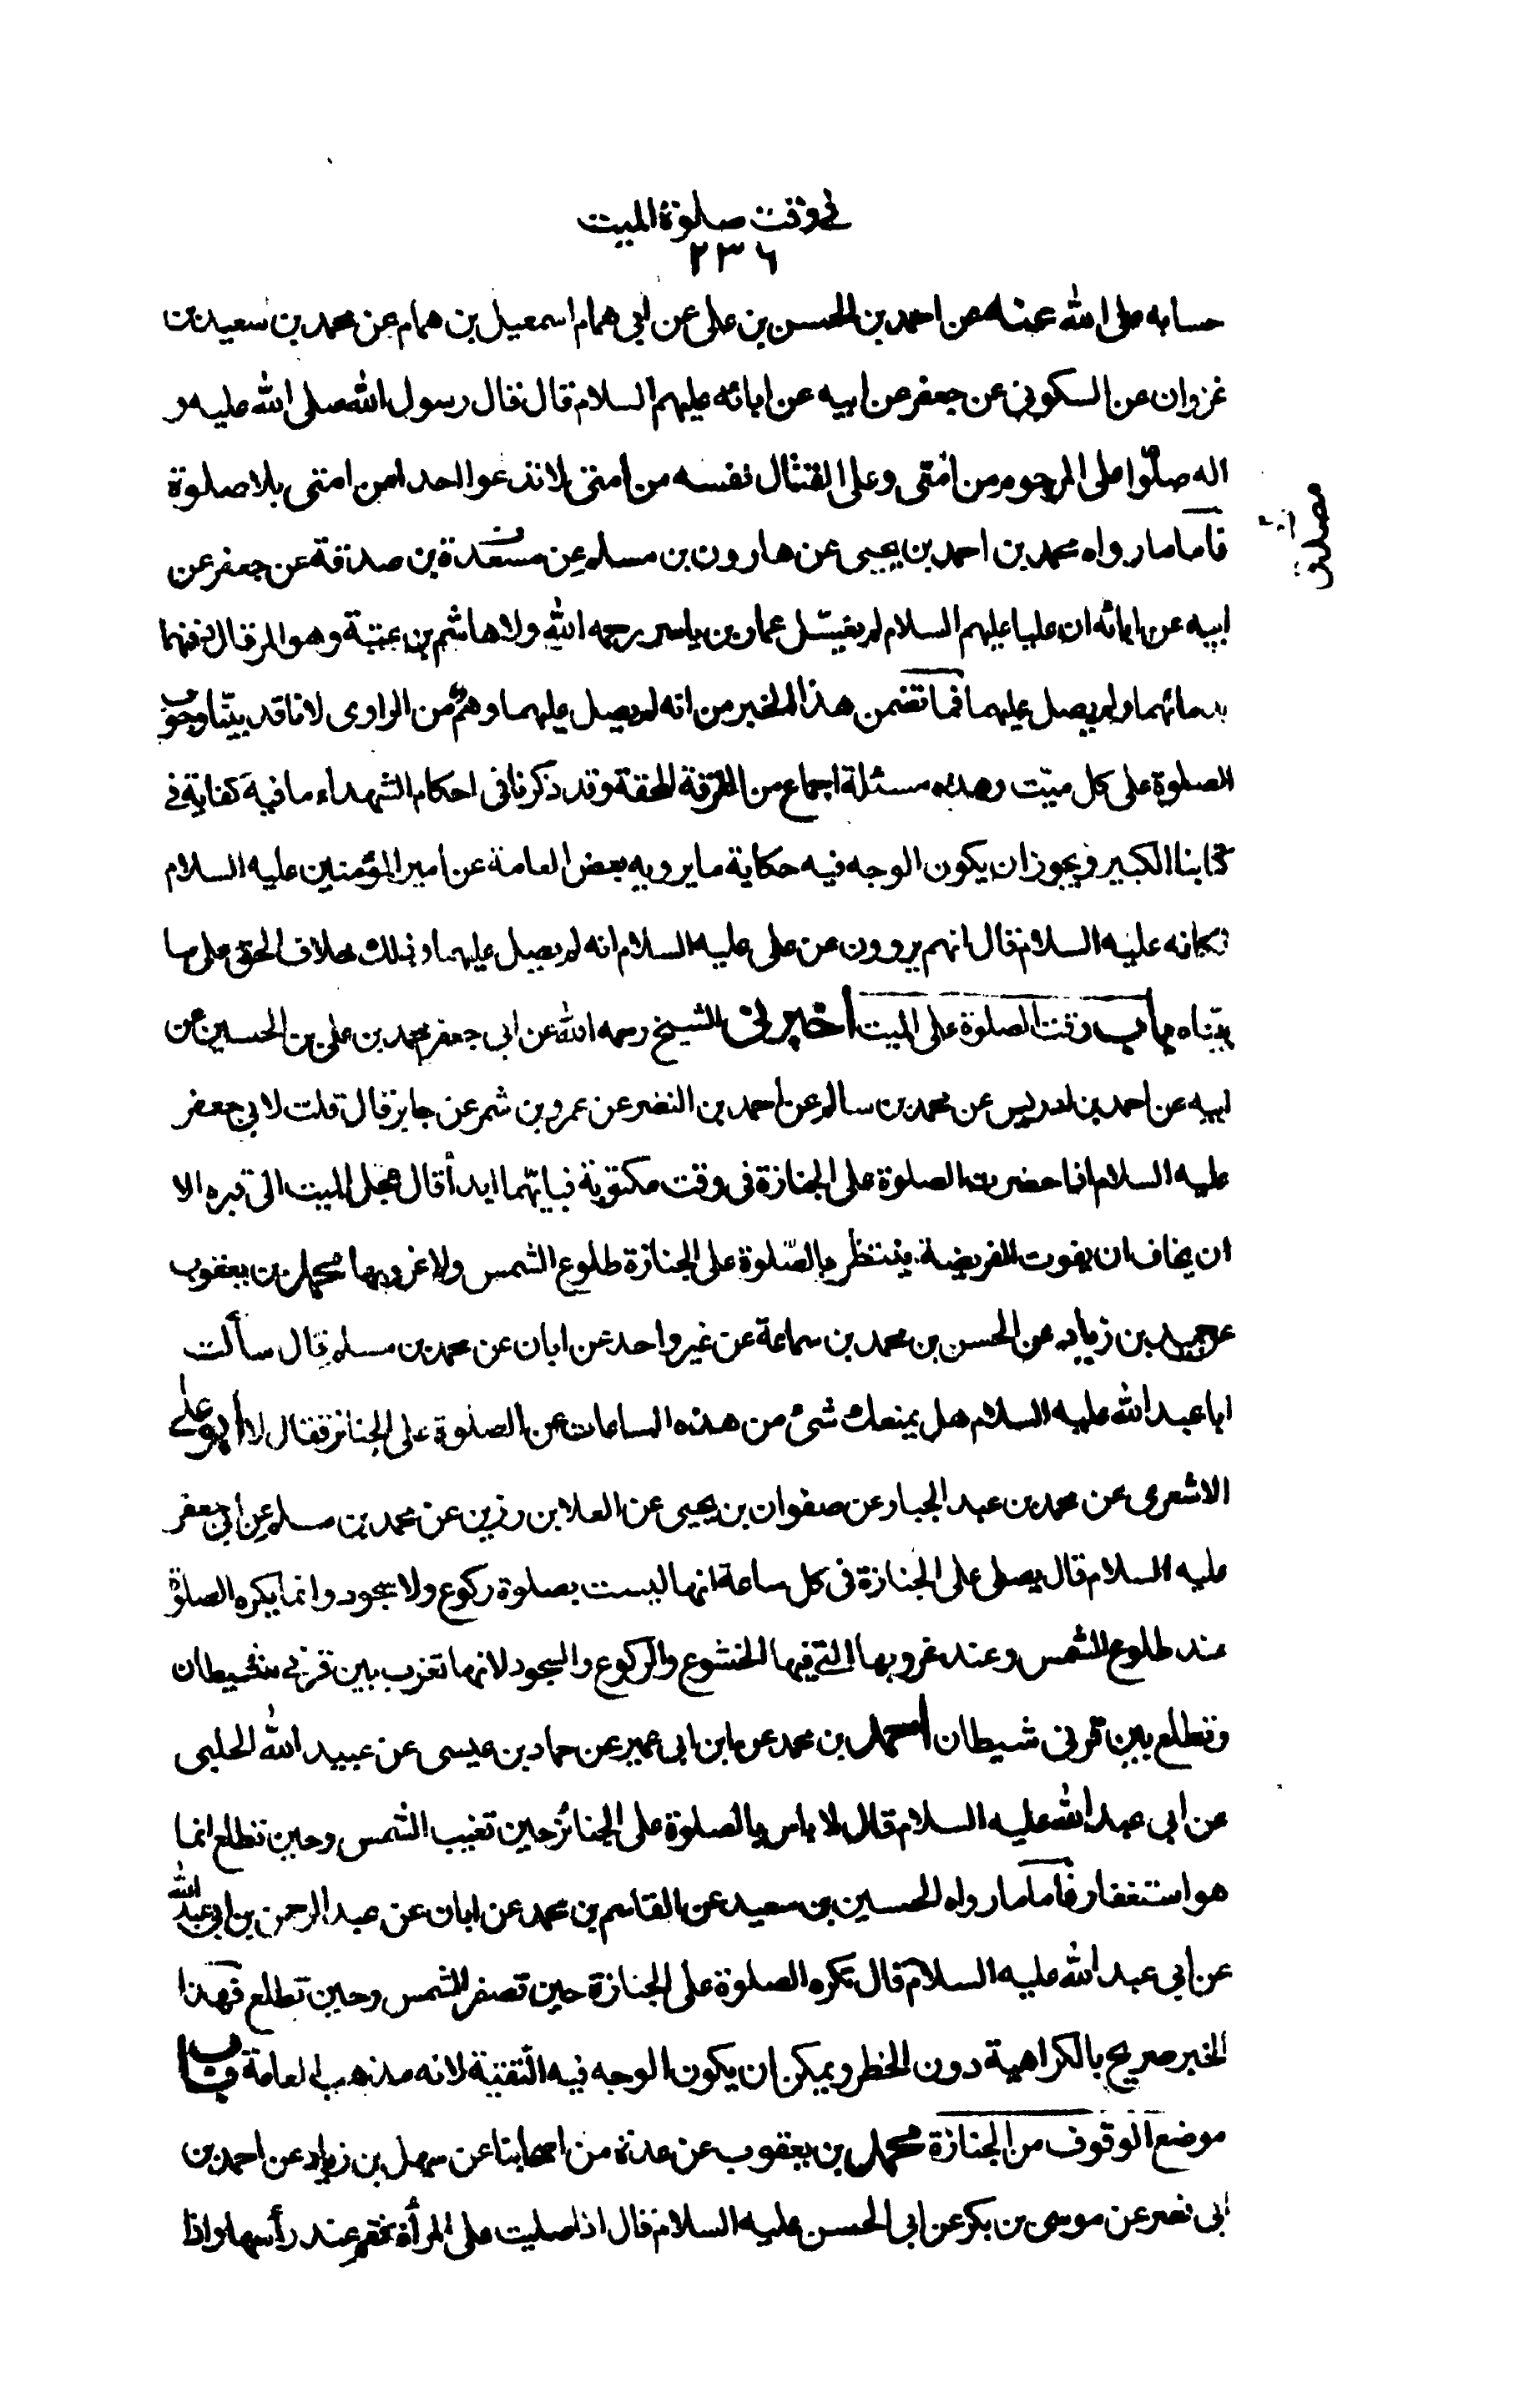 في وقت صلوة الميت
٢٣٦
حسابه على الله عنه عن احمد بن الحسن بن على عن ابى همام اسمعيل بن همام عن محمد بن سعيد بن
غزوان عن السكونى عن جعفر عن ابيه عن ابائه عليهم السلام قال قال رسول الله صلى الله عليه و
اله صلّوا على المرجوم من امّتى وعلى القتّال نفسه من امتى لا تدعوا احدا من امتى بلا صلوة
فاما ما رواه محمد بن احمد بن يحيى عن هارون بن مسلم عن مسعدة بن صدقة عن جعفر عن
ابيه عن ابائه ان عليا عليهم السلام لم يغسّل عمار بن ياسر رحمه الله ولا هاشم بن عتبة وهو المرقال دفنهما
بدمائهما ولم يصل عليهما فما تضمن هذا الخبر من انه لم يصل عليهما وهمٌ من الراوى لانا قد بيّنا وجوب
الصلوة على كل ميّت وهذه مسئلة اجماع من الفرقة المحقة وقد ذكرنا فى احكام الشهداء ما فيه كفاية فى
كتابنا الكبير ويجوز ان يكون الوجه فيه حكاية ما يرويه بعض العامة عن امير المؤمنين عليه السلام
فكانه عليه السلام قال انهم يروون عن على عليه السلام انه لم يصل عليهما وذلك خلاف الحق على ما
بيّناه باب وقت الصلوة على الميت أخبرنى الشيخ رحمه الله عن ابى جعفر محمد بن على بن الحسين عن
ابيه عن احمد بن ادريس عن محمد بن سالم عن احمد بن النضر عن عمرو بن شمر عن جابر قال قلت لابى جعفر
عليه السلام اذا حضرت الصلوة على الجنازة فى وقت مكتوبة فبايّهما ابدأ قال عجل الميت الى قبره الا
ان يخاف ان يفوت الفريضة ينتظر بالصّلوة على الجنازة طلوع الشمس ولا غروبها محمد بن يعقوب
عن حميد بن زياد عن الحسن بن محمد بن سماعة عن غير واحد عن ابان عن محمد بن مسلم قال سألت
ابا عبد الله عليه السلام هل يمنعك شئ من هذه الساعات عن الصلوة على الجنائز فقال لا أبو على
الاشعرى عن محمد بن عبد الجبار عن صفوان بن يحيى عن العلا بن رزين عن محمد بن مسلم عن ابى جعفر
عليه السلام قال يصلى على الجنازة فى كل ساعة انها ليست بصلوة ركوع ولا سجود وانما يكره الصلوة
عند طلوع الشمس وعند غروبها التى فيها الخشوع والركوع والسجود لانها تغرب بين قرنى شيطان
وتطلع بين قرنى شيطان احمد بن محمد عن ابن ابى عمير عن حماد بن عيسى عن عبيد الله الحلبى
عن ابى عبد الله عليه السلام قال لا باس بالصلوة على الجنائز حين تغيب الشمس وحين تطلع انما
هو استغفار فاما ما رواه الحسين بن سعيد عن القاسم بن محمد عن ابان عن عبد الرحمن بن ابى عبد الله
عن ابى عبد الله عليه السلام قال تكره الصلوة على الجنازة حين تصفر الشمس وحين تطلع فهذا
الخبر صريح بالكراهية دون الحظر ويمكن ان يكون الوجه فيه التّقيّة لانه مذهب العامة باب
موضع الوقوف من الجنازة محمد بن يعقوب عن عدة من اصحابنا عن سهل بن زياد عن احمد بن
ابى نصر عن موسى بن بكر عن ابى الحسن عليه السلام قال اذا صليت على المرأة فقم عند رأسها واذا